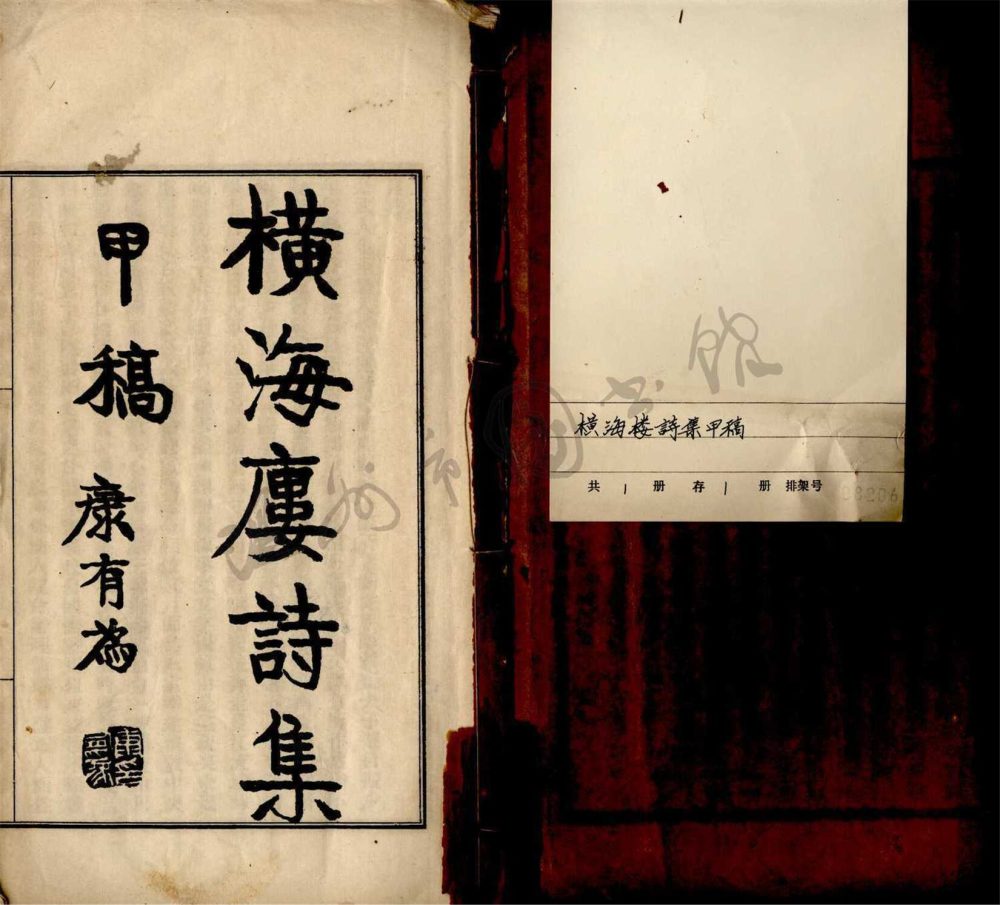 横海廔詩集
甲稿 康有為
横海楼詩集甲稿
共 1 册 存 1 册 排架号